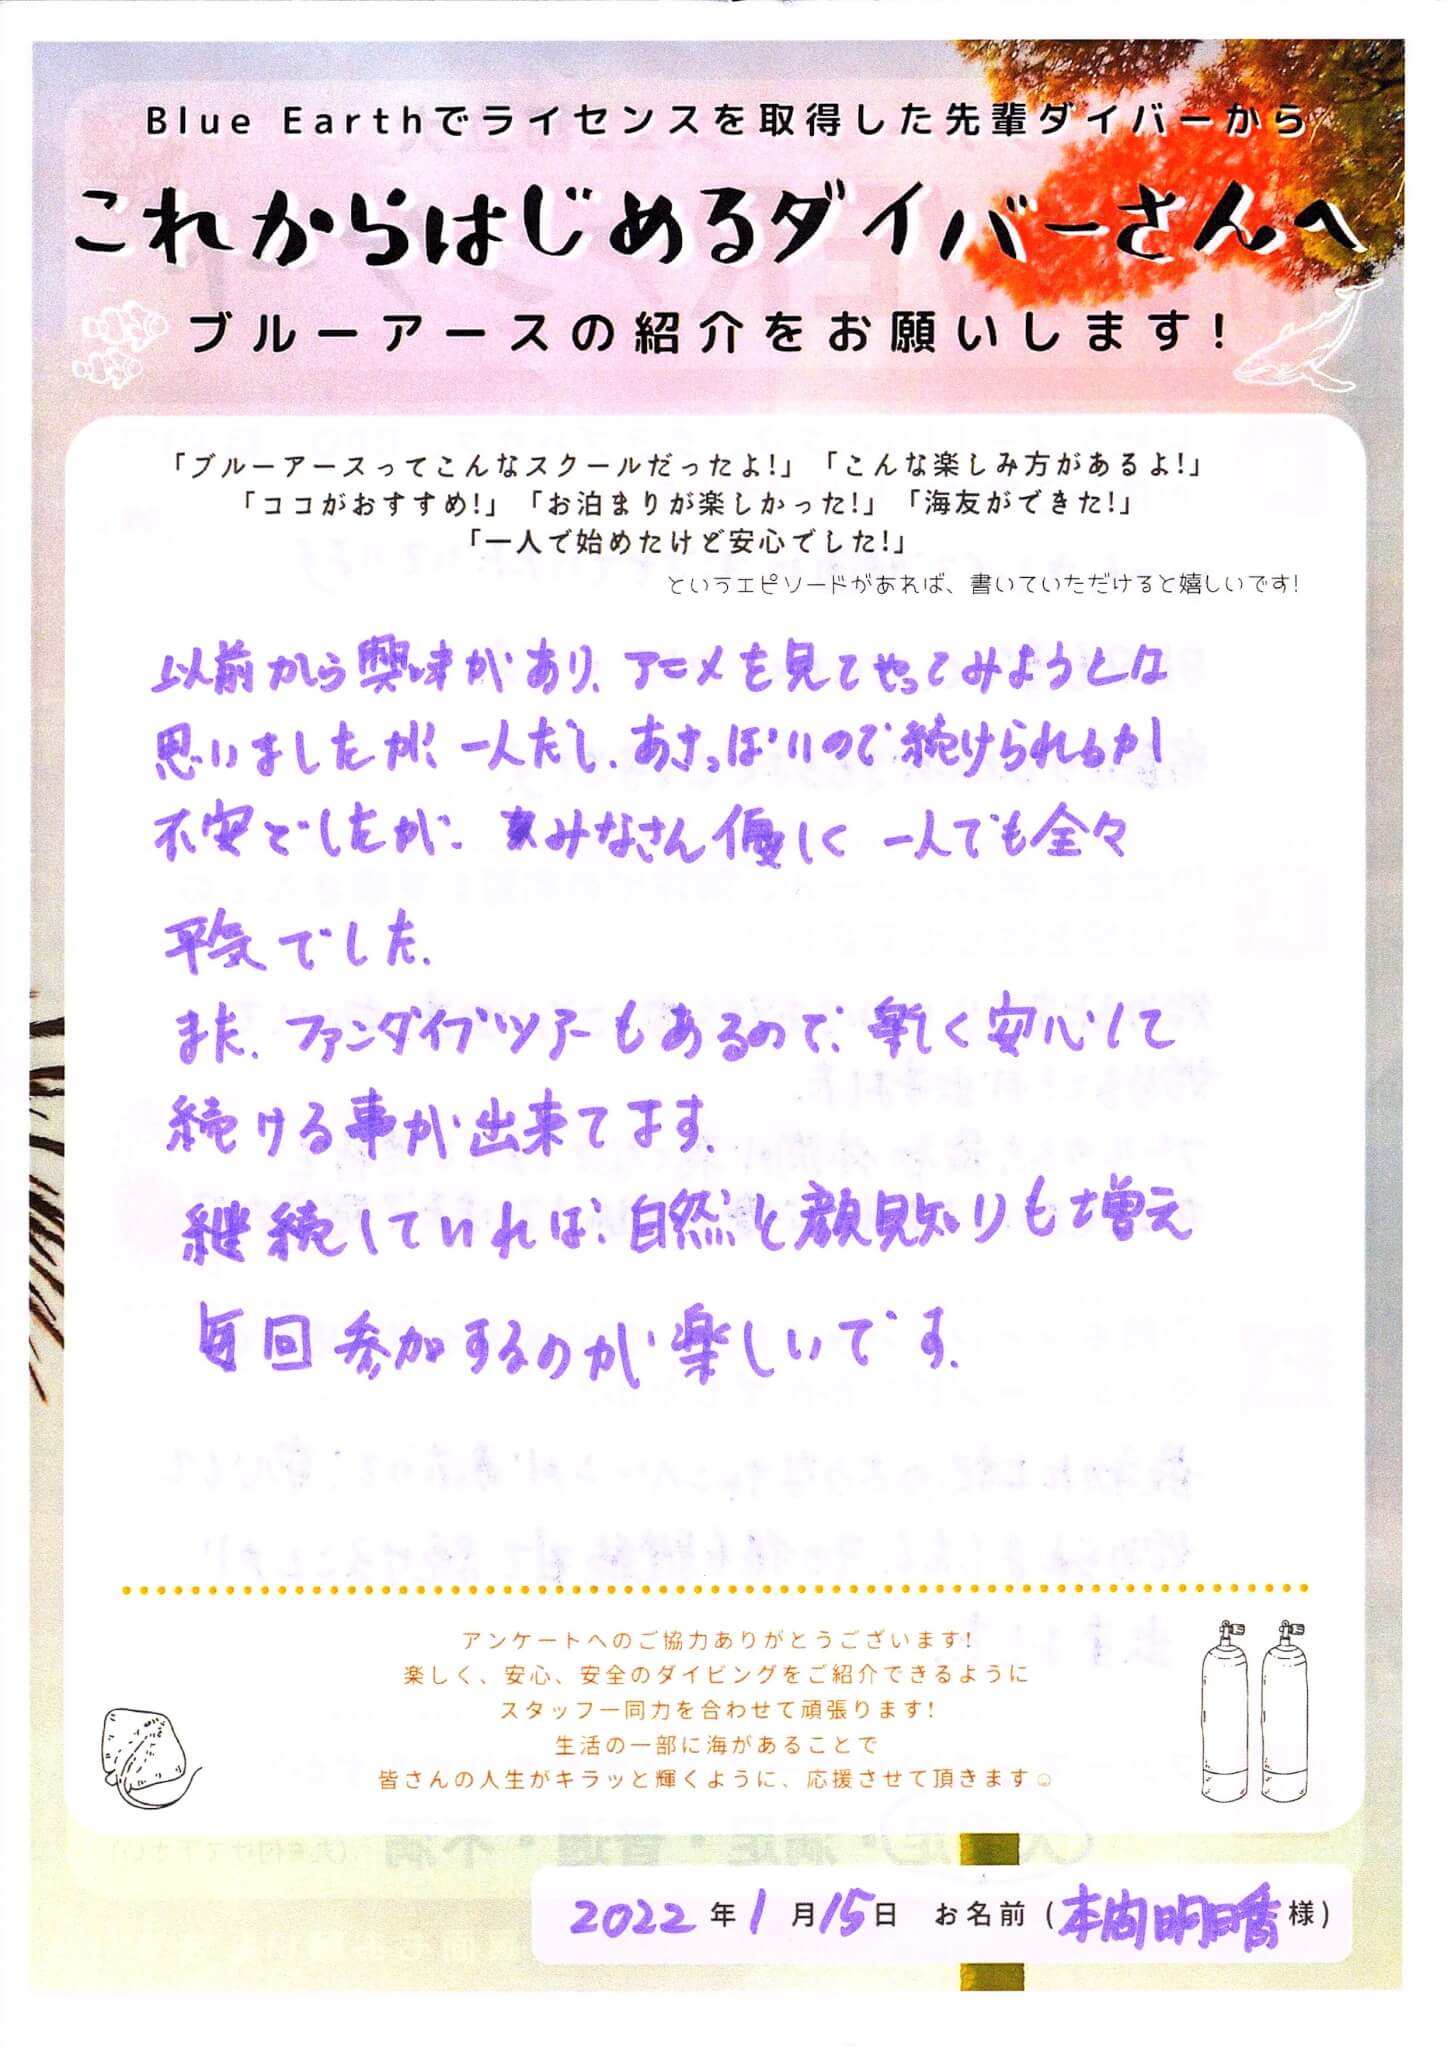 Blue Earthでライセンスを取得した先輩ダイバーから
これからはじめるダイバーさんへ
ブルーアースの紹介をお願いします!
「ブルーアースってこんなスクールだったよ!」「こんな楽しみ方があるよ!」
「ココがおすすめ!」「お泊まりが楽しかった!」「海友ができた!」
「一人で始めたけど安心でした!」
というエピソードがあれば、書いていただけると嬉しいです!
以前から興味があり、アニメを見てやってみようとは
思いましたが、一人だし、あきっぽいので続けられるか
不安でしたが、みなさん優しく 一人でも全々
平気でした。
また、ファンダイブツアーもあるので、楽しく安心して
続ける事が出来てます。
継続していれば、自然と顔見知りも増え
毎回参加するのが楽しいです。
アンケートへのご協力ありがとうございます!
楽しく、安心、安全のダイビングをご紹介できるように
スタッフ一同力を合わせて頑張ります!
生活の一部に海があることで
皆さんの人生がキラッと輝くように、応援させて頂きます☺
2022年1月15日 お名前(本間明日香様)